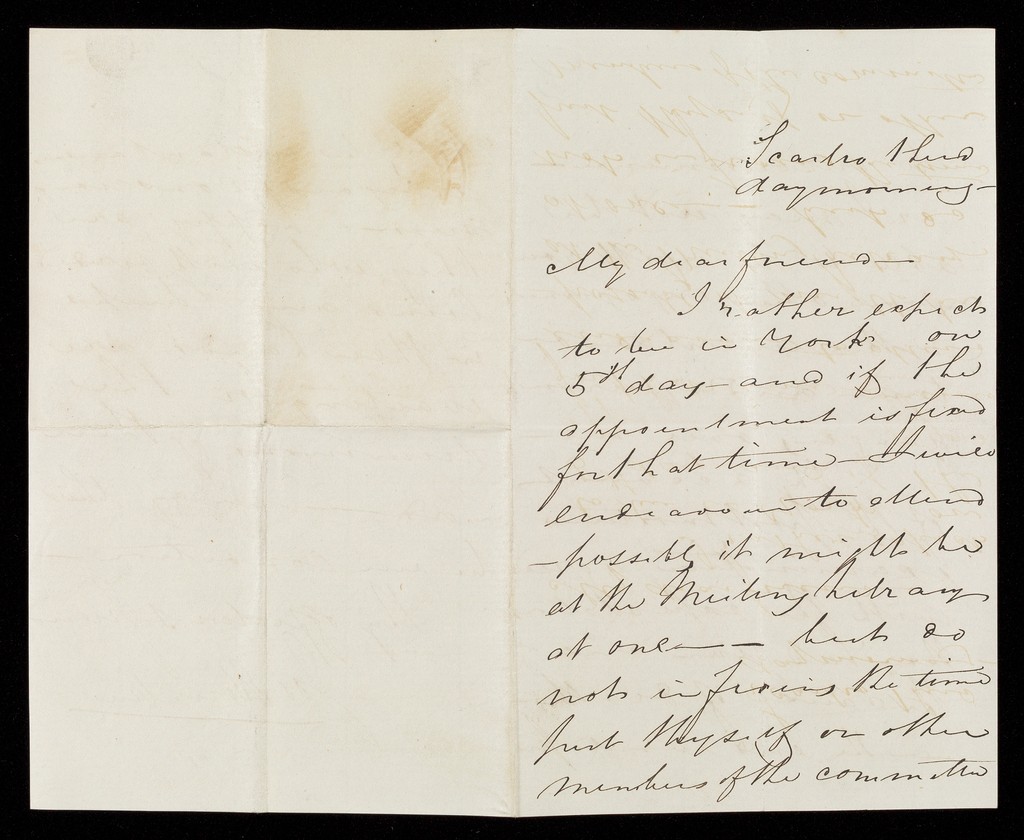 Scarbro third
daymorning—
My dear friend—
I rather expect
to be in York on
5th day—and if the
appointment is fixed
for that time—I will
endeavour to attend
—possibly it might be
at the Meeting library
at one— but do
not in fixing the time
put thyself or other
members of the committee